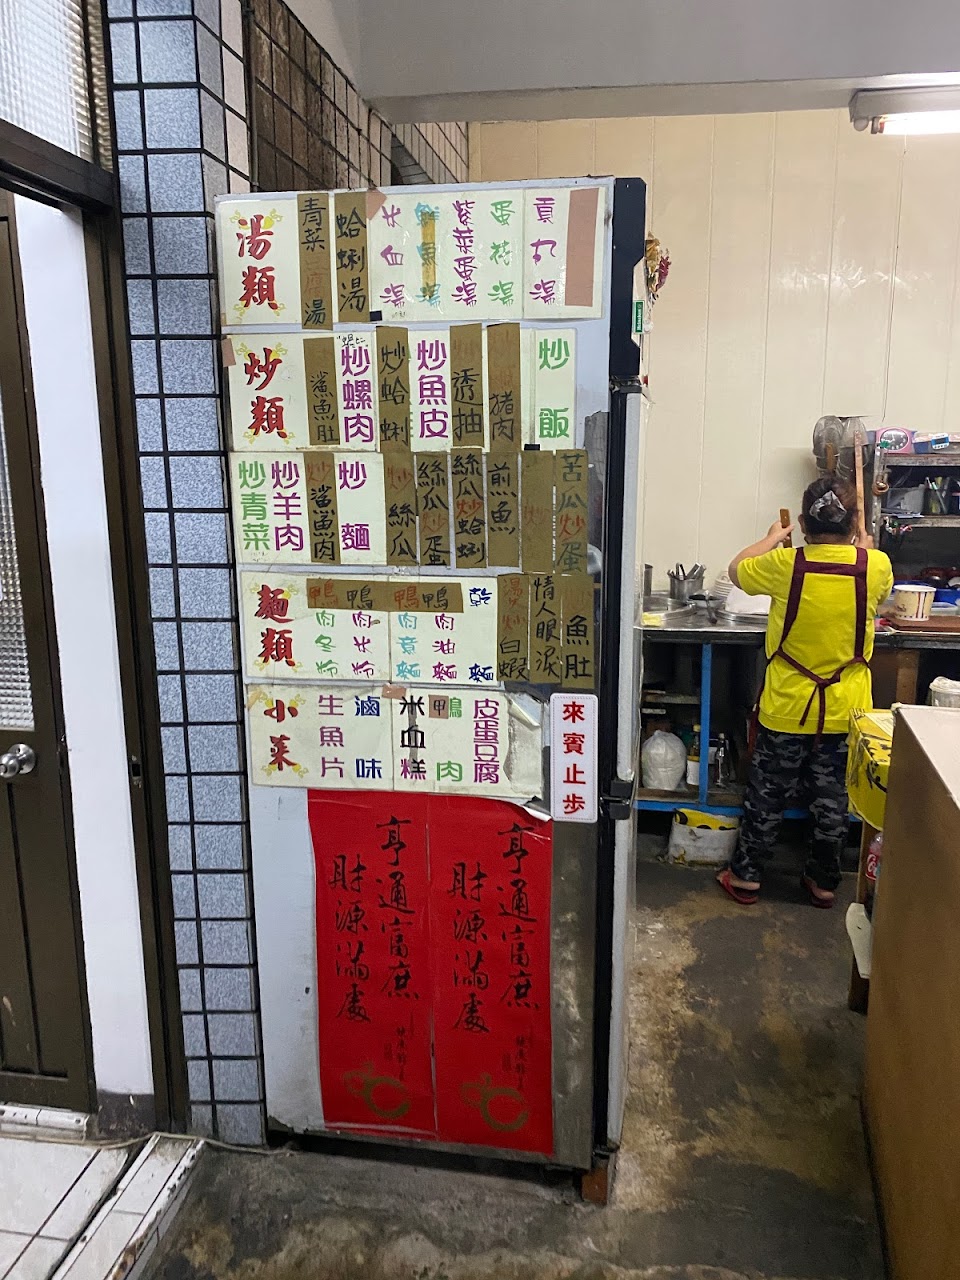 湯類
青菜豆腐湯
蛤蜊湯
米血湯
鮮魚湯
紫菜蛋湯
蛋花湯
貢丸湯
炒類
鯊魚肚
炒螺肉
炒蛤蜊
炒魚皮
透抽
豬肉
炒飯
炒青菜
炒羊肉
炒鯊魚肉
炒麵
炒絲瓜
絲瓜炒蛋
絲瓜炒蛤蜊
煎魚
苦瓜炒蛋
麵類
鴨肉冬粉
鴨肉米粉
鴨肉意麵
鴨肉油麵
乾麵
燙炒白蝦
情人眼淚
魚肚
小菜
生魚片
滷味
米血糕
鴨肉
皮蛋豆腐
來賓止步
亨通富庶
財源滿處
亨通富庶
財源滿處